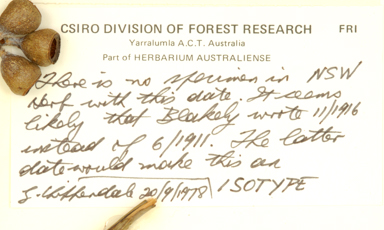 CSIRO DIVISION OF FOREST RESEARCH FRI
Yarralumla A.C.T. Australia
Part of HERBARIUM AUSTRALIENSE
There is no specimen in NSW
Herb with this date. It seems
likely that Blakely wrote 11/1916
instead of 6/1911. The latter
date would make this an
G. Chippendale 20/9/1978 ISOTYPE